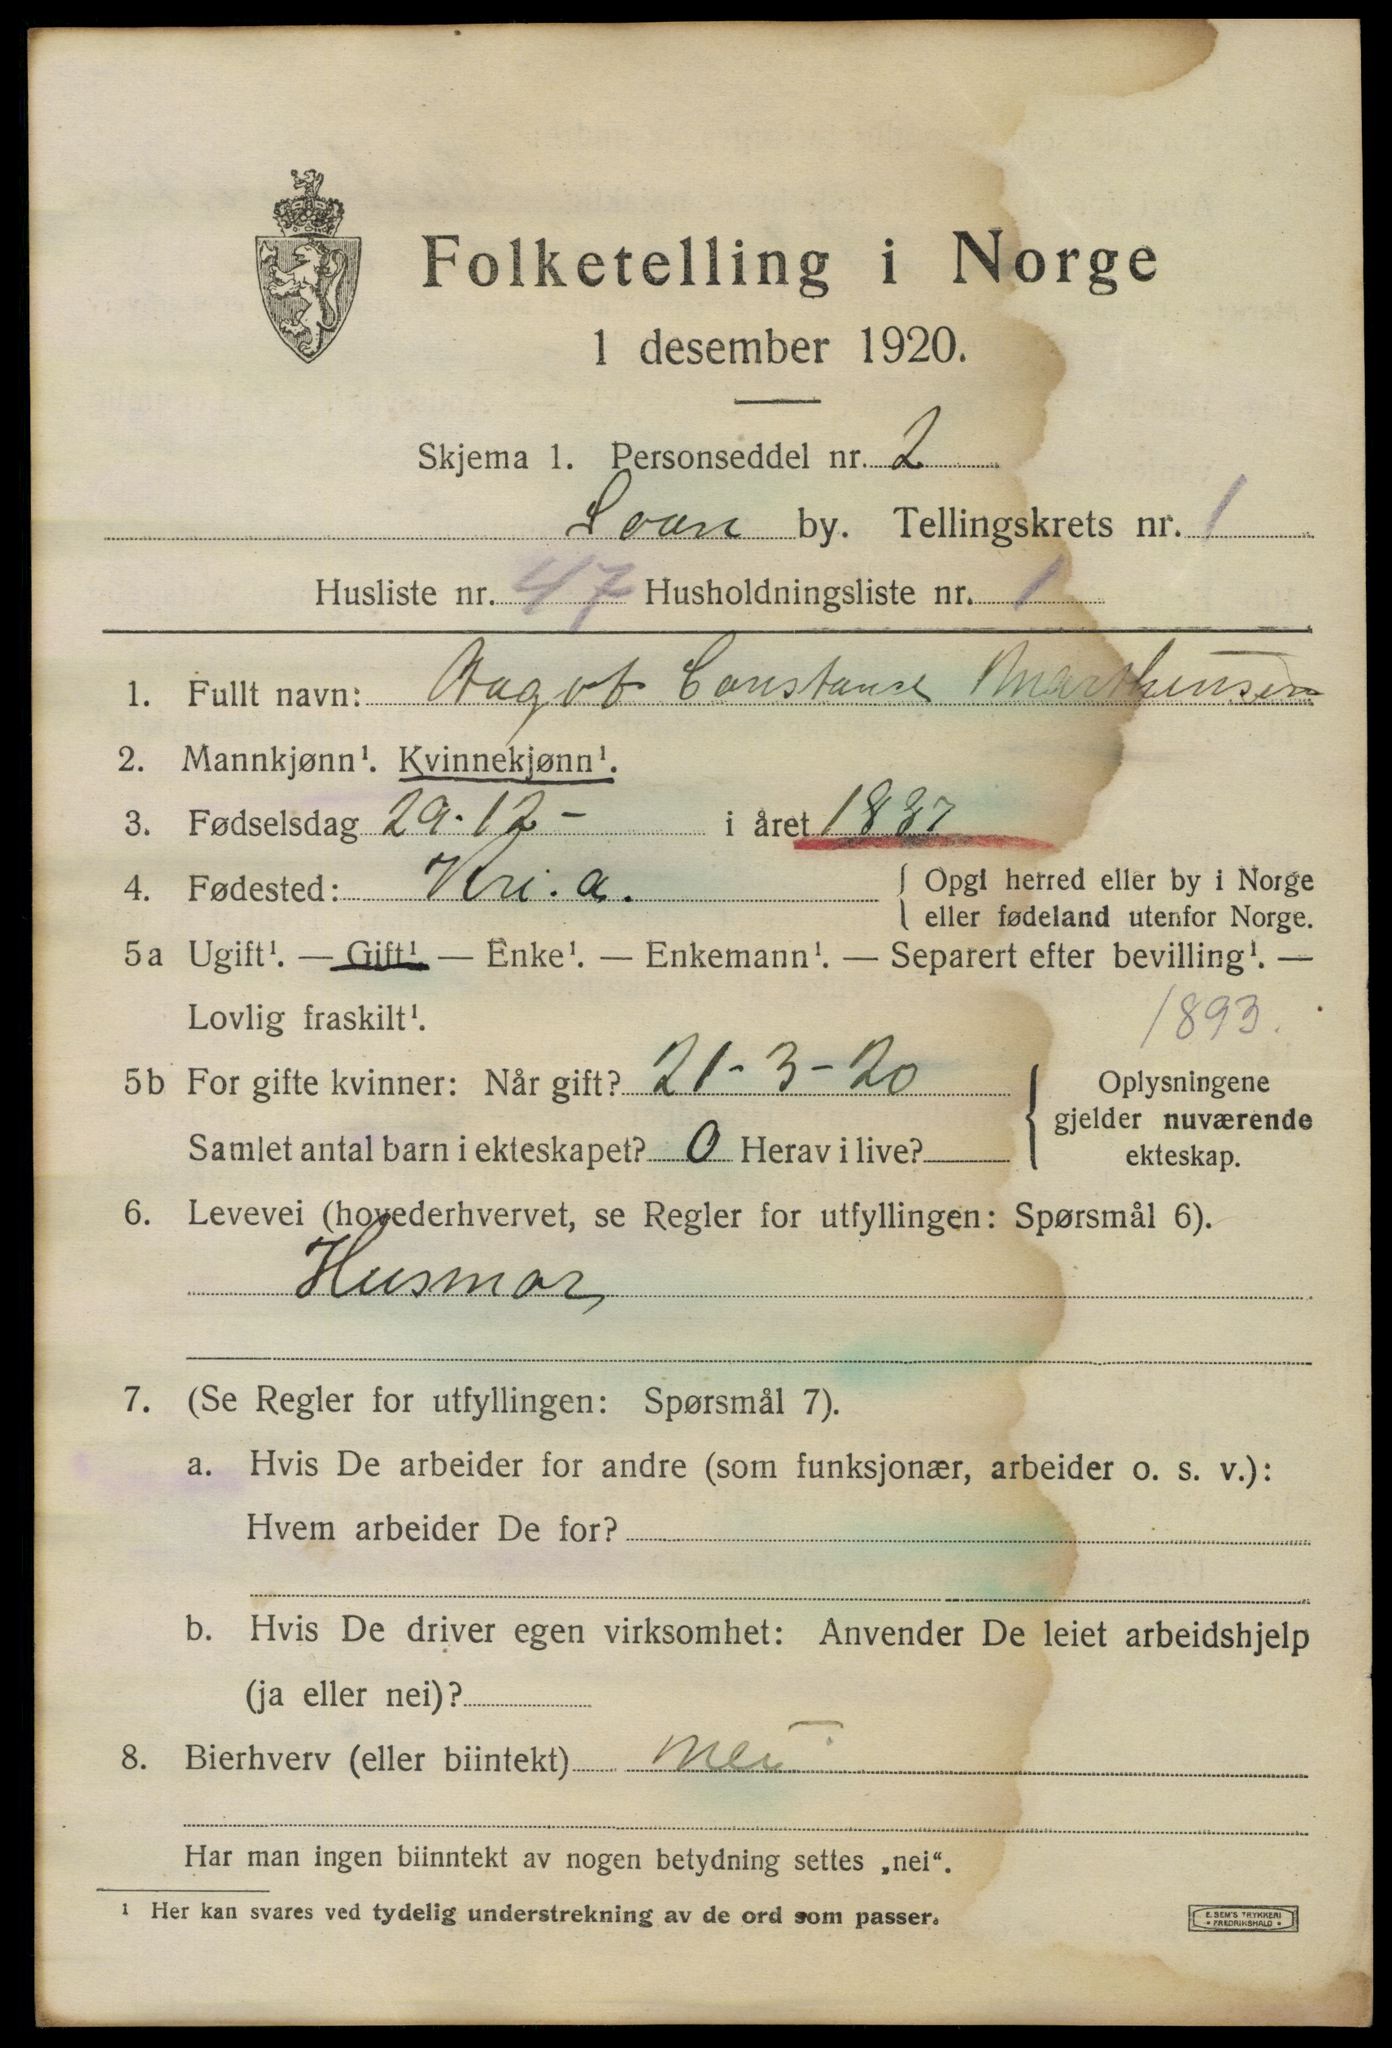 Folketelling i Norge
1 desember 1920.
Skjema 1. Personseddel nr. 2
by. Tellingskrets nr. 1
Husliste nr. 47 Husholdningsliste nr. 1
1. Fullt navn: Aagot Constance Marthinsen
2. Mannkjønn¹. Kvinnekjønn¹.
3. Fødselsdag 29.12- i året 1887
4. Fødested: Kri.a. { Opgi herred eller by i Norge
eller fødeland utenfor Norge.
5a Ugift¹. — Gift¹ — Enke¹. — Enkemann¹. — Separert efter bevilling¹. —
Lovlig fraskilt¹. 1893.
5b For gifte kvinner: Når gift? 21-3-20
Samlet antal barn i ekteskapet? 0 Herav i live?
{ Oplysningene
gjelder nuværende
ekteskap.
6. Levevei (hovederhvervet, se Regler for utfyllingen: Spørsmål 6).
Husmor
7. (Se Regler for utfyllingen: Spørsmål 7).
a. Hvis De arbeider for andre (som funksjonær, arbeider o. s. v.):
Hvem arbeider De for?
b. Hvis De driver egen virksomhet: Anvender De leiet arbeidshjelp
(ja eller nei)?
8. Bierhverv (eller biintekt) nei
Har man ingen biinntekt av nogen betydning settes „nei“.
¹ Her kan svares ved tydelig understrekning av de ord som passer.
E. SEM'S TRYKKERI
• FREDRIKSHALD •